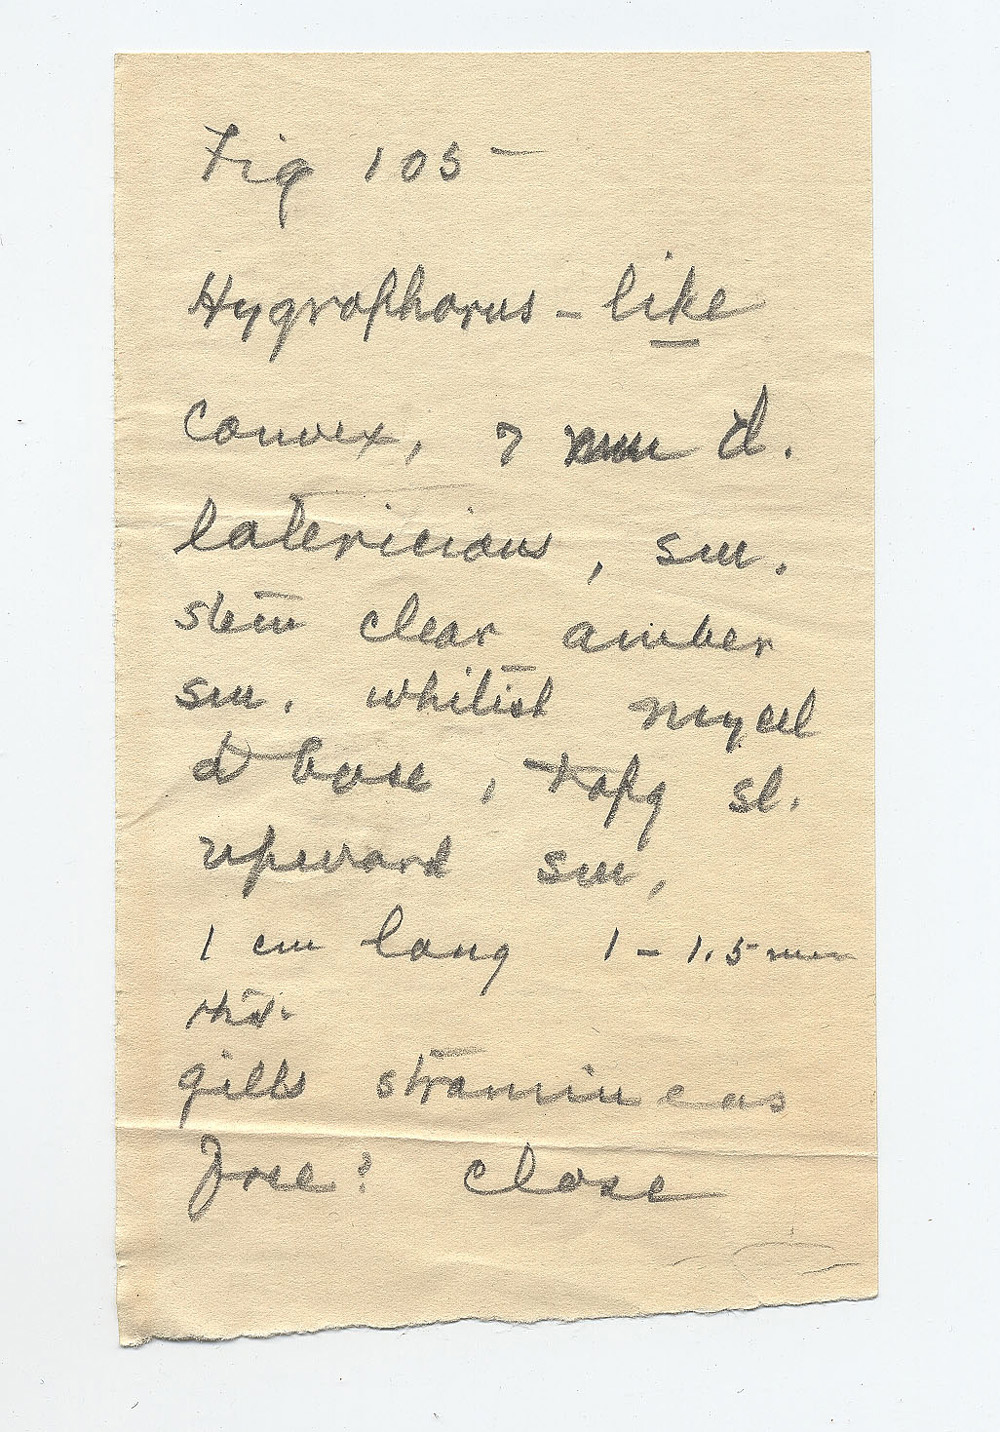 Fig 105
Hygrophorus - like
convex, 7 mm d.
latericious, sm.
stem clear amber
sm. whitish mycel
at base, tapg sl.
upward sm,
1 cm long 1 - 1.5 mm
thk.
gills stramineous
free? close